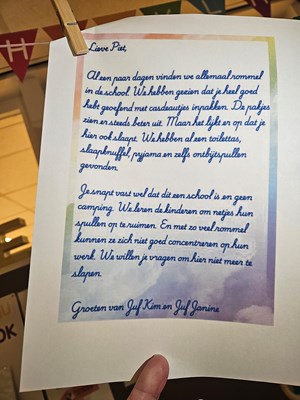 Lieve Piet,
Al een paar dagen vinden we allemaal rommel
in de school. We hebben gezien dat je heel goed
hebt geoefend met cadeautjes inpakken. De pakjes
zien er steeds beter uit. Maar het lijkt er op dat je
hier ook slaapt. We hebben al een toilettas,
slaapknuffel, pyjama en zelfs ontbijtspullen
gevonden.
Je snapt vast wel dat dit een school is en geen
camping. We leren de kinderen om netjes hun
spullen op te ruimen. En met zo veel rommel
kunnen ze zich niet goed concentreren op hun
werk. We willen je vragen om hier niet meer te
slapen.
Groeten van Juf Kim en Juf Janine
OK